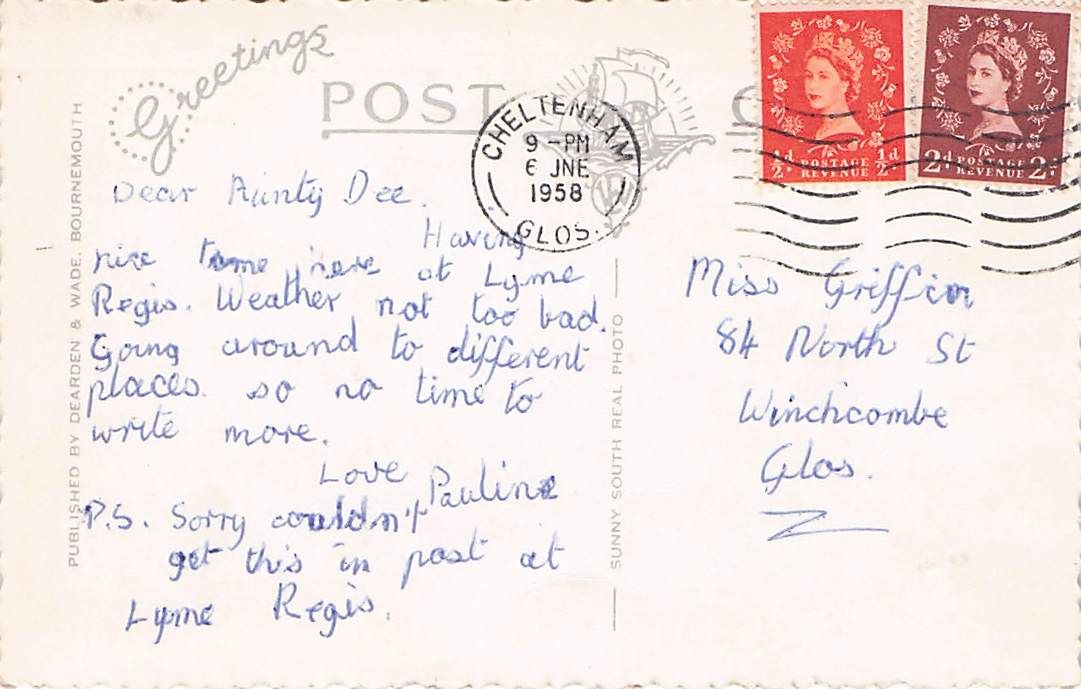 Greetings
POST C
CHELTENHAM
9 - PM
6 JNE
1958
GLOS.
½d POSTAGE REVENUE ½d
2d POSTAGE REVENUE 2d
PUBLISHED BY DEARDEN & WADE, BOURNEMOUTH
Dear Aunty Dee.
Having
nice time here at Lyme
Regis. Weather not too bad.
Going around to different
places so no time to
write more.
Love Pauline
P.S. Sorry couldn't
get this in post at
Lyme Regis.
SUNNY SOUTH REAL PHOTO
Miss Griffin
84 North St
Winchcombe
Glos.